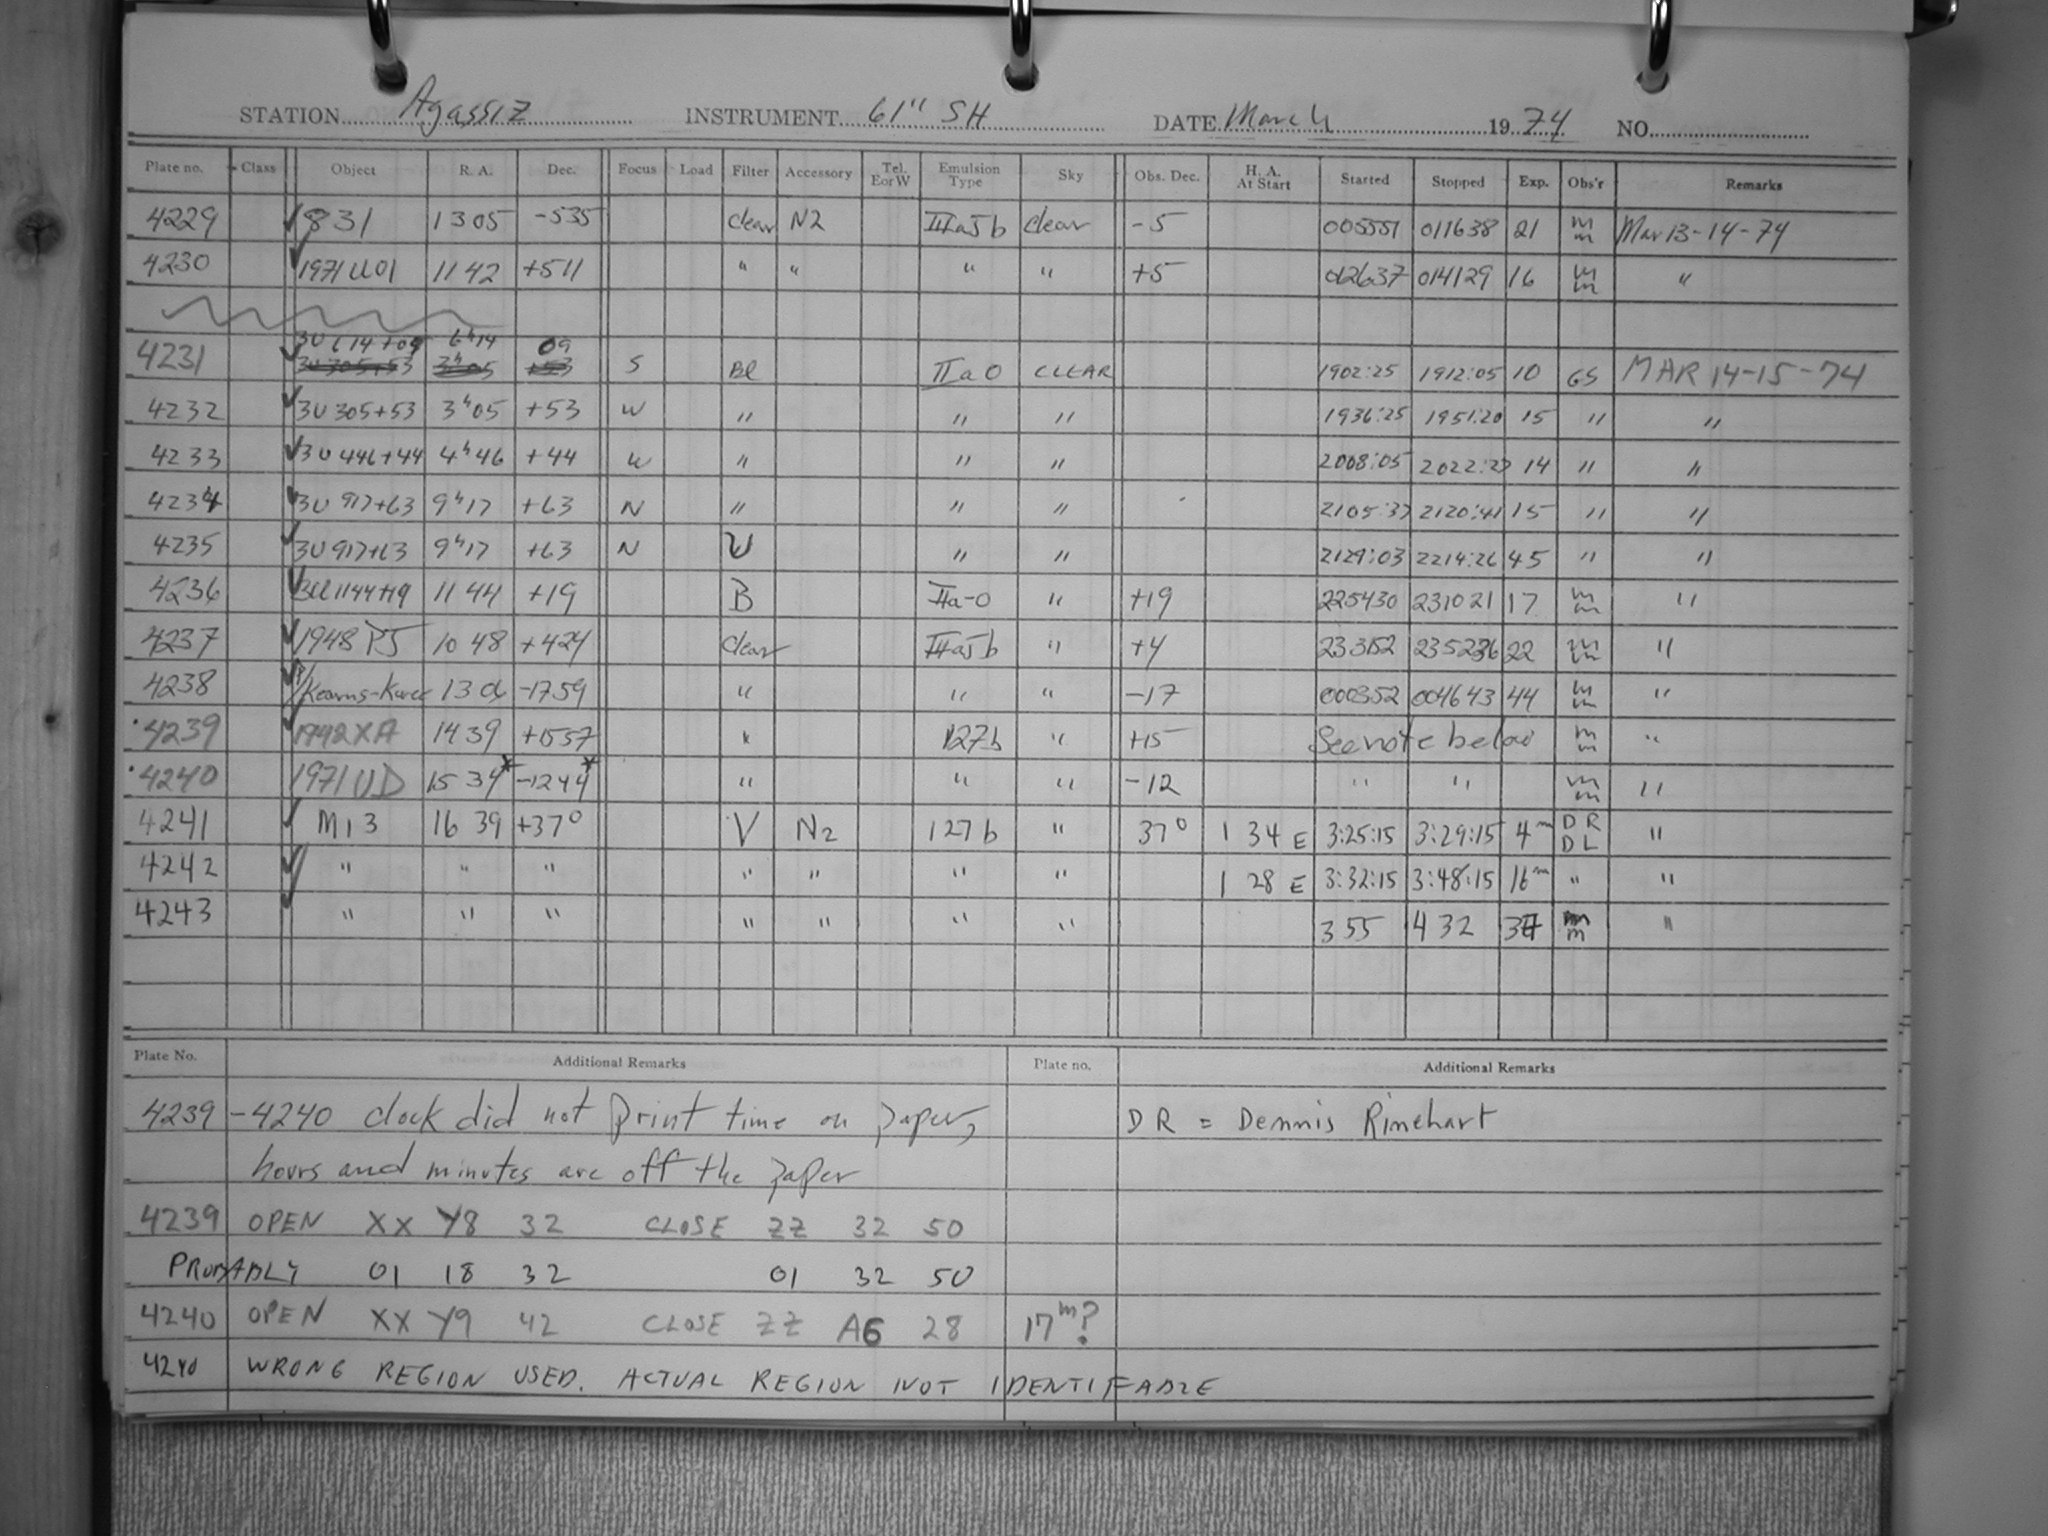 STATION Agassiz INSTRUMENT 61" SH DATE March 1974 NO.
Plate no. Class Object R. A. Dec. Focus Load Filter Accessory Tel. E or W Emulsion Type Sky Obs. Dec. H. A. At Start Started Stopped Exp. Obs'r Remarks
4229 ✓ 831 13 05 -535 clear N2 IIIaJ b clear -5 005551 011638 21 m m Mar 13-14-74
4230 ✓ 1971 UO1 11 42 +511 " " " " +5 012637 014129 16 m m "
3U 614+09 6h14 09
4231 ✓ 3U 305+53 3h05 +53 S Bl IIa O CLEAR 1902:25 1912:05 10 GS MAR 14-15-74
4232 ✓ 3U 305+53 3h05 +53 W " " " 1936:25 1951:20 15 " "
4233 ✓ 3U 446+44 4h46 +44 W " " " 2008:05 2022:27 14 " "
4234 ✓ 3U 917+63 9h17 +63 N " " " 2105:37 2120:41 15 " "
4235 ✓ 3U 917+63 9h17 +63 N U " " 2129:03 2214:26 45 " "
4236 ✓ 1144+19 11 44 +19 B IIa-O " +19 225430 231021 17 m m "
4237 ✓ 1948 PJ 10 48 +424 clear IIIaJ b " +4 233152 235236 22 m m "
4238 ✓ P/Kearns-Kwee 13 06 -1759 " " " -17 000352 004643 44 m m "
4239 ✓ 1942 XA 14 39 +1557 " 127b " +15 See note below m m "
4240 1971 UD 15 34* -1244* " " " -12 " " m m "
4241 ✓ M13 16 39 +37° V N2 127b " 37° 1 34 E 3:25:15 3:29:15 4m DR DL "
4242 ✓ " " " " " " " 1 28 E 3:32:15 3:48:15 16m " "
4243 ✓ " " " " " " " 3 55 4 32 37 m m "
Plate No. Additional Remarks Plate no. Additional Remarks
4239 - 4240 clock did not print time on paper, DR = Dennis Rinehart
hours and minutes are off the paper
4239 OPEN XX Y8 32 CLOSE ZZ 32 50
PROBABLY 01 18 32 01 32 50
4240 OPEN XX Y9 42 CLOSE ZZ A6 28 17m?
4240 WRONG REGION USED. ACTUAL REGION NOT IDENTIFIABLE